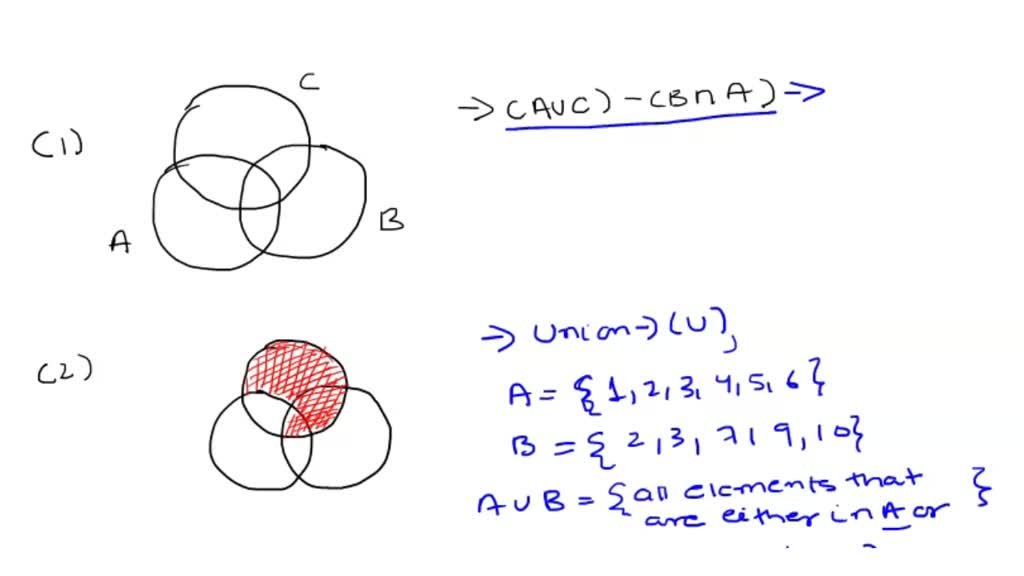 C
(1)
→ (A∪C) - (B∩A) →
B
A
(2)
→ Union → (∪),
A = {1, 2, 3, 4, 5, 6}
B = {2, 3, 7, 9, 10}
A ∪ B = {all elements that }
are either in A or